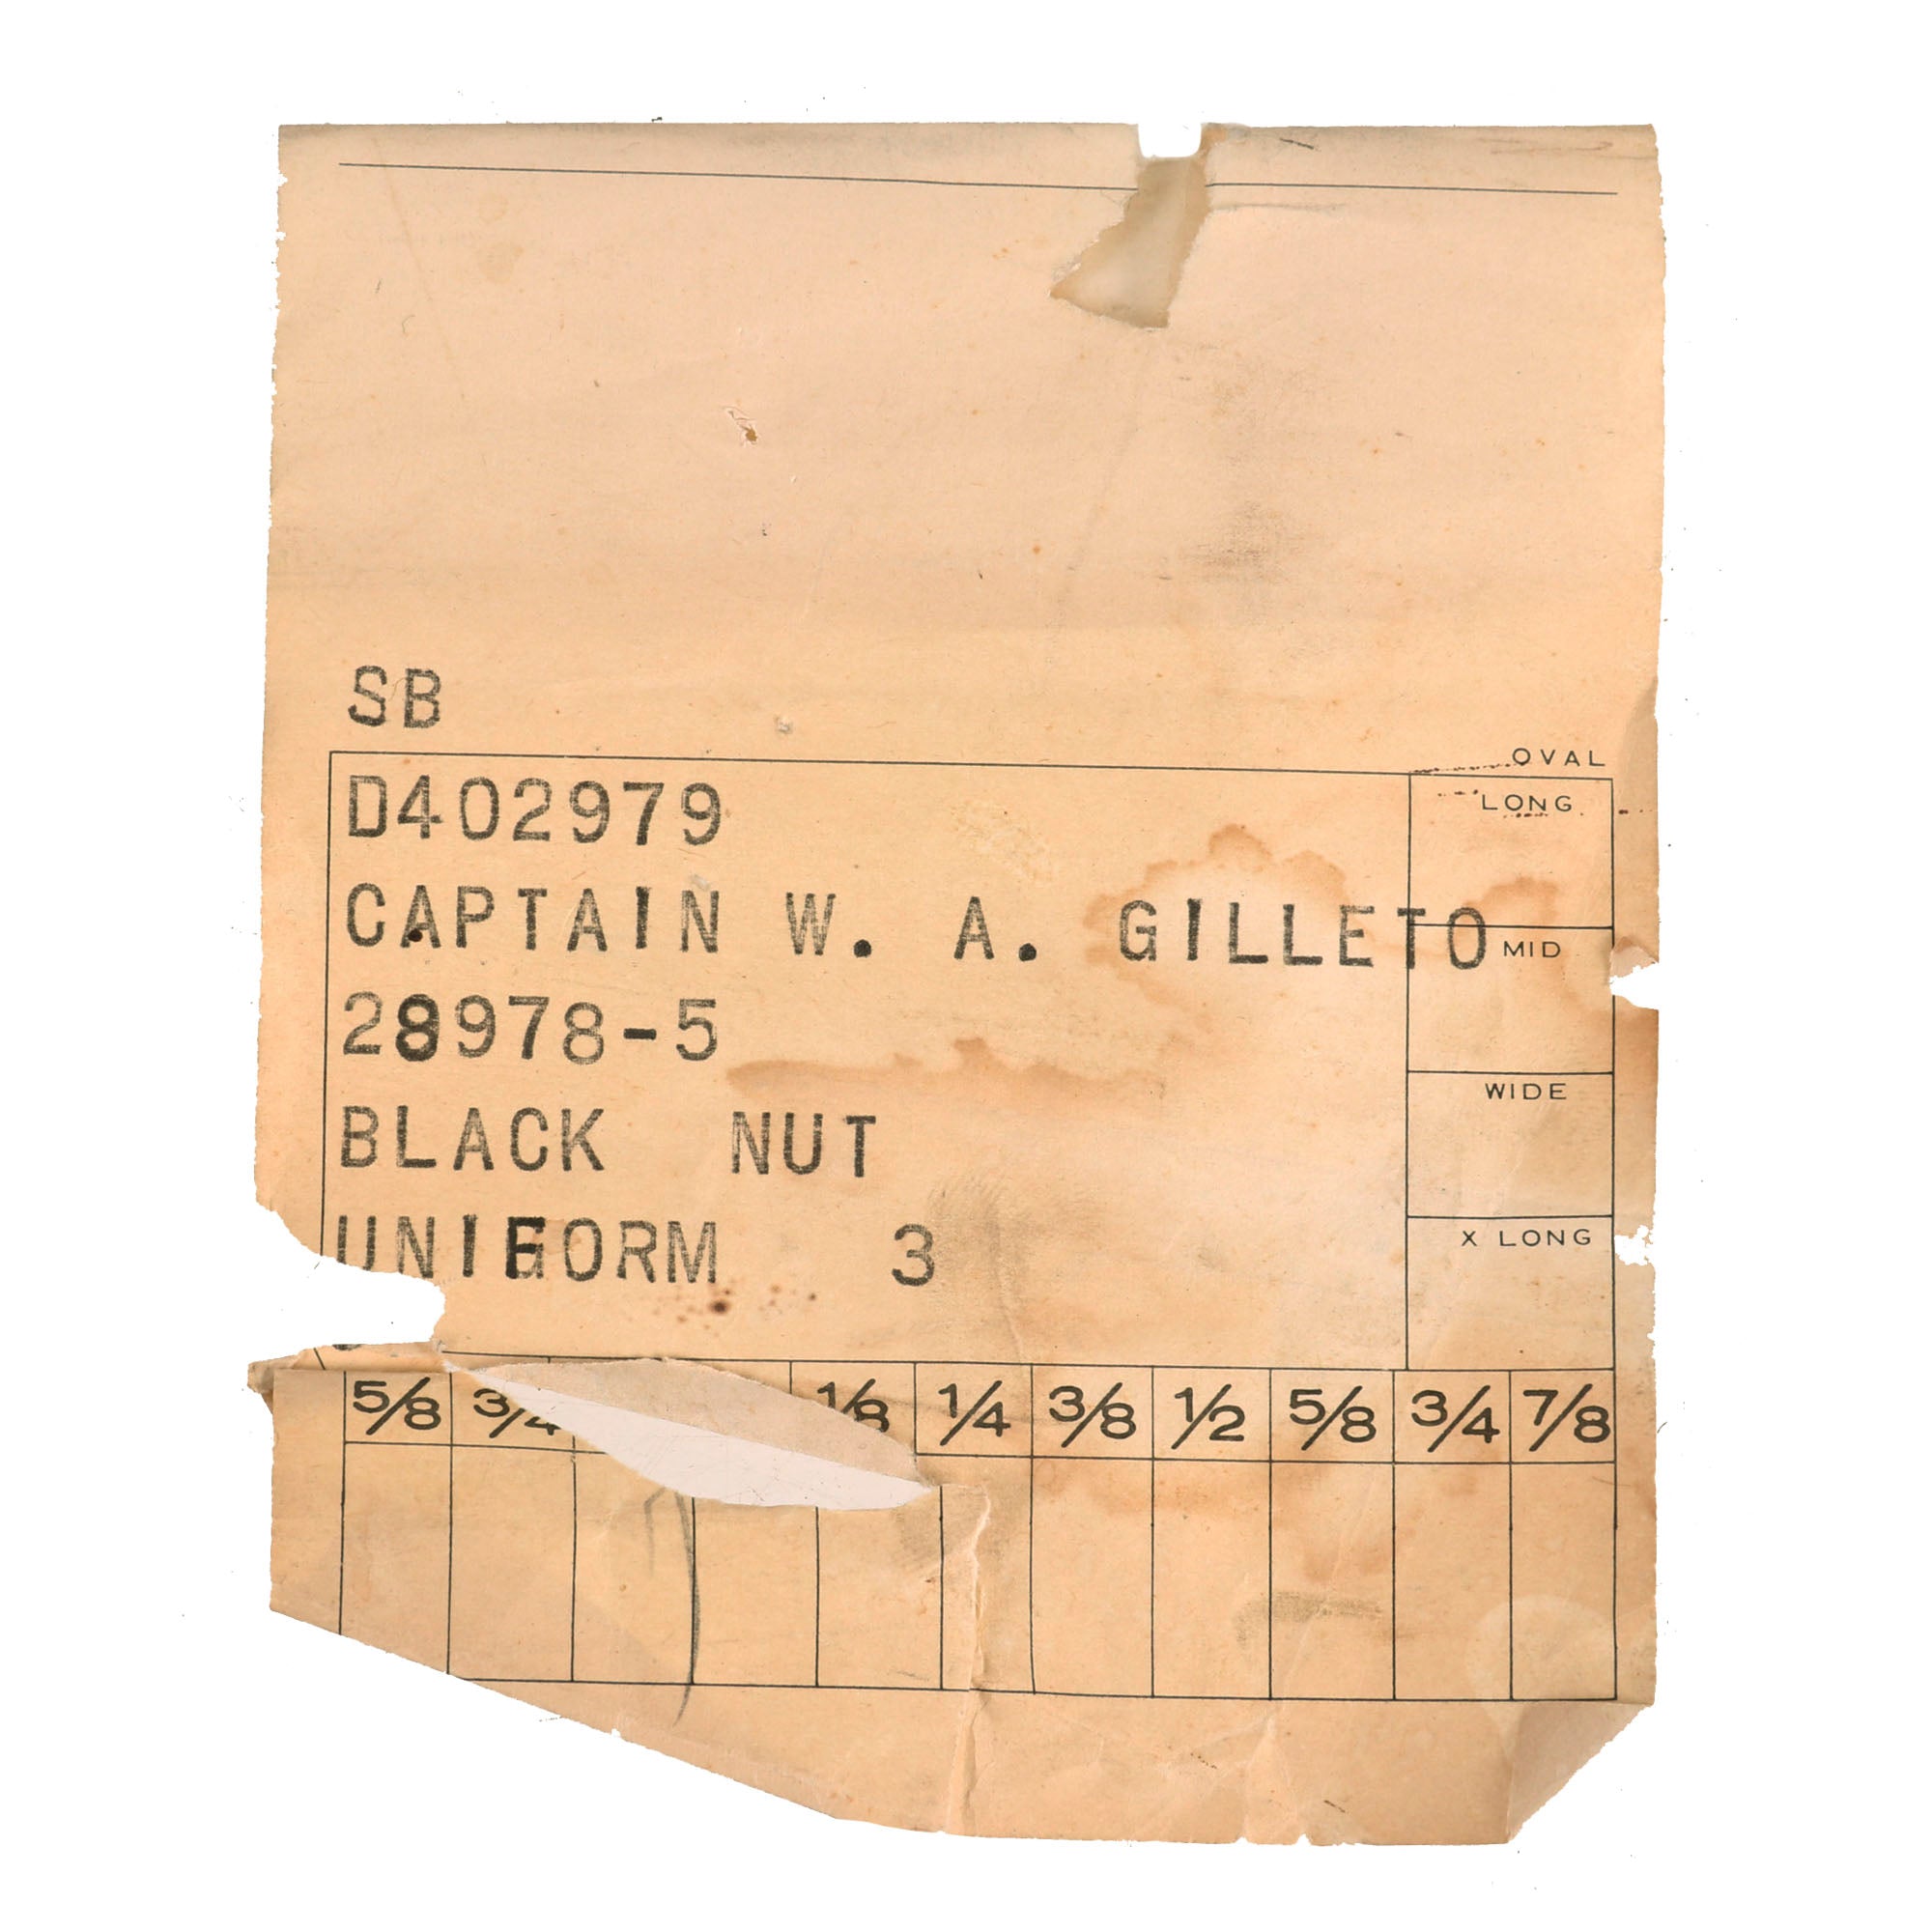 SB
OVAL
D402979
LONG
CAPTAIN W. A. GILLETO
MID
28978-5
WIDE
BLACK NUT
UNIFORM 3
X LONG
5/8 3/4 1/8 1/4 3/8 1/2 5/8 3/4 7/8